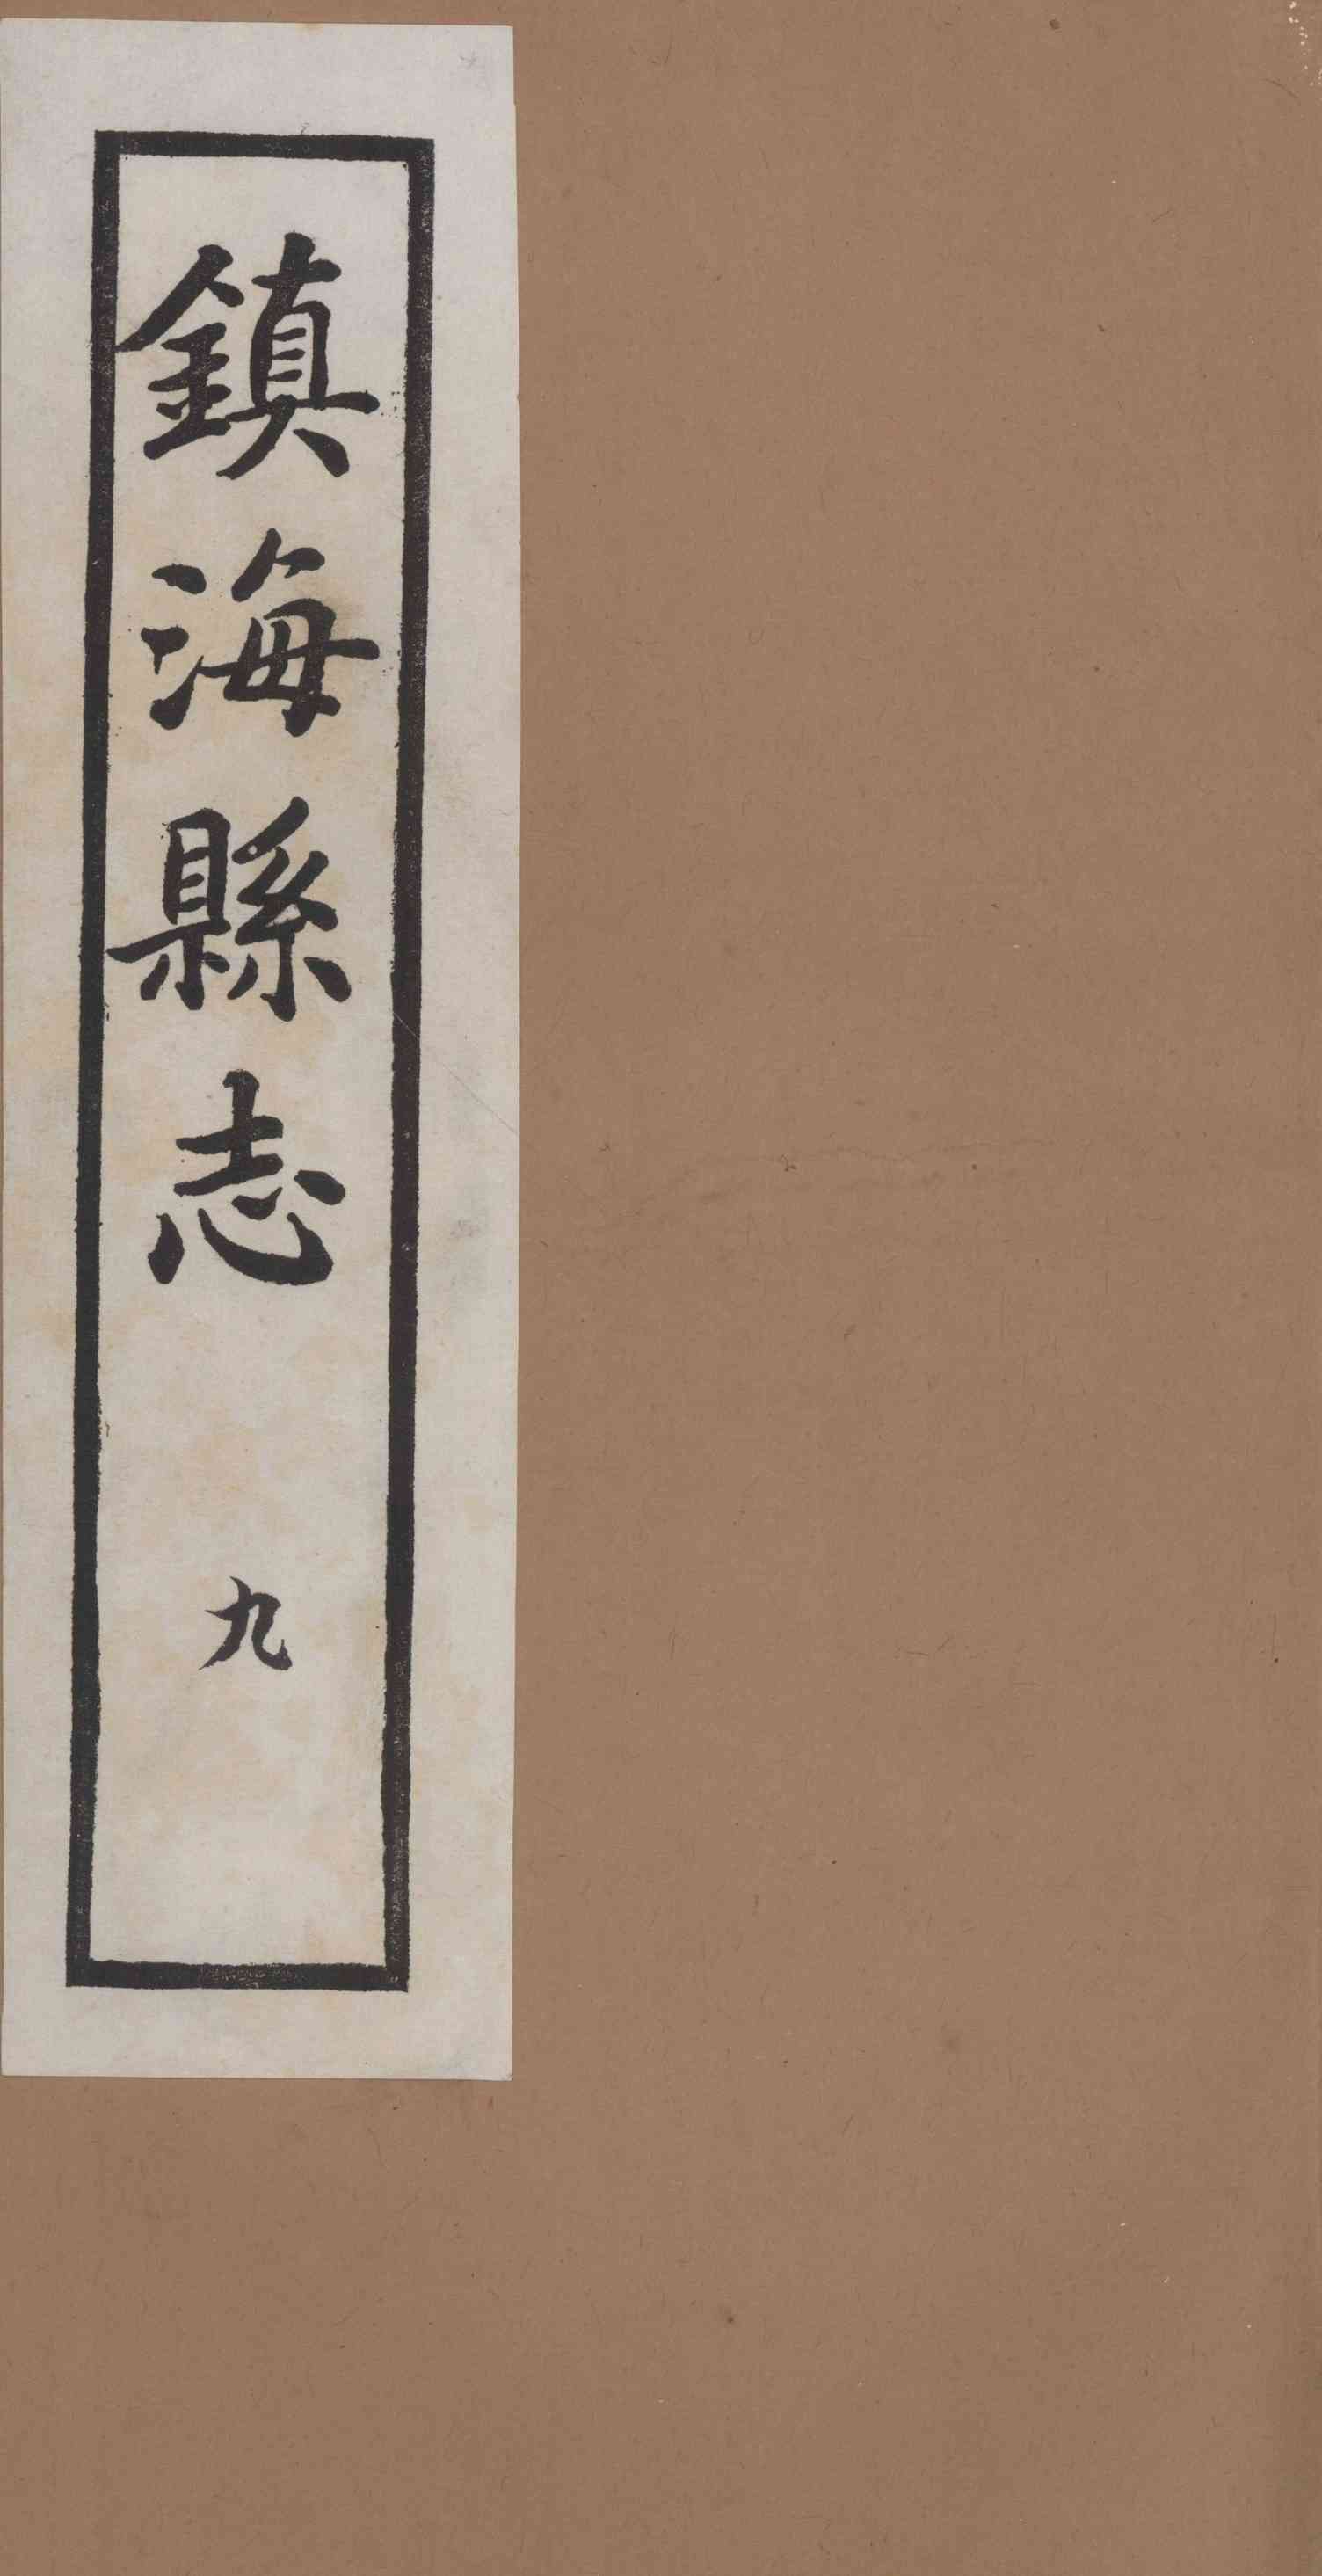 鎮海縣志
九